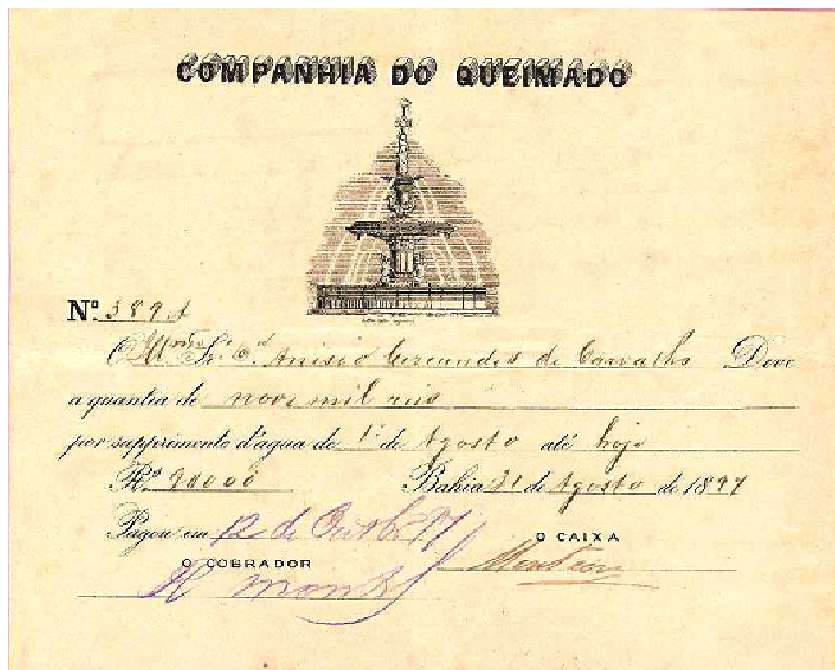 COMPANHIA DO QUEIMADO
Nº 3891
Illmo Sr. Dr. Anisio Circundes de Carvalho Deve
a quantia de nove mil reis
por supprimento d'agua de 1º de Agosto até hoje
Rs. 9$000 Bahia 31 de Agosto de 1897
Pagou em 12 de Outbro 97
O CAIXA
O COBRADOR